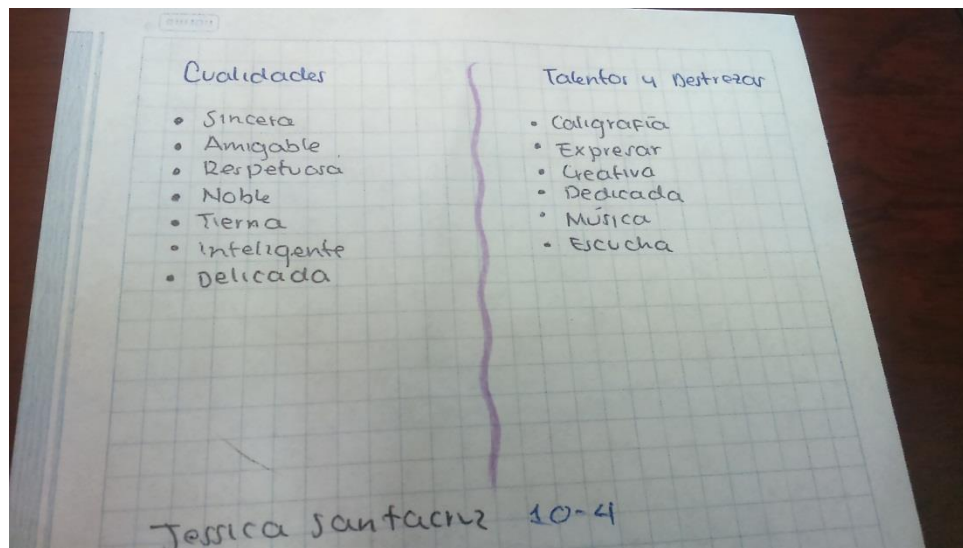 Cualidades
• Sincera
• Amigable
• Respetuosa
• Noble
• Tierna
• inteligente
• Delicada
Talentos y Destrezas
• Caligrafía
• Expresar
• Creativa
• Dedicada
• Música
• Escucha
Jessica Santacruz 10-4